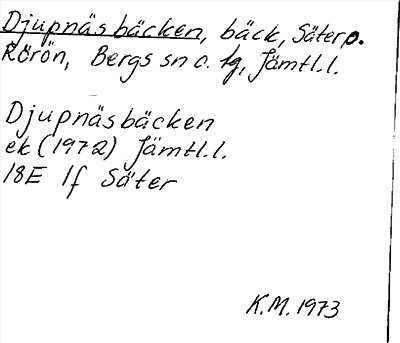 Djupnäsbäcken, bäck, Säter p.
Rörön, Bergs sn o. tg, Jämtl.l.
Djupnäsbäcken
ek (1972) Jämtl.l.
18E 1f Säter
K.M. 1973